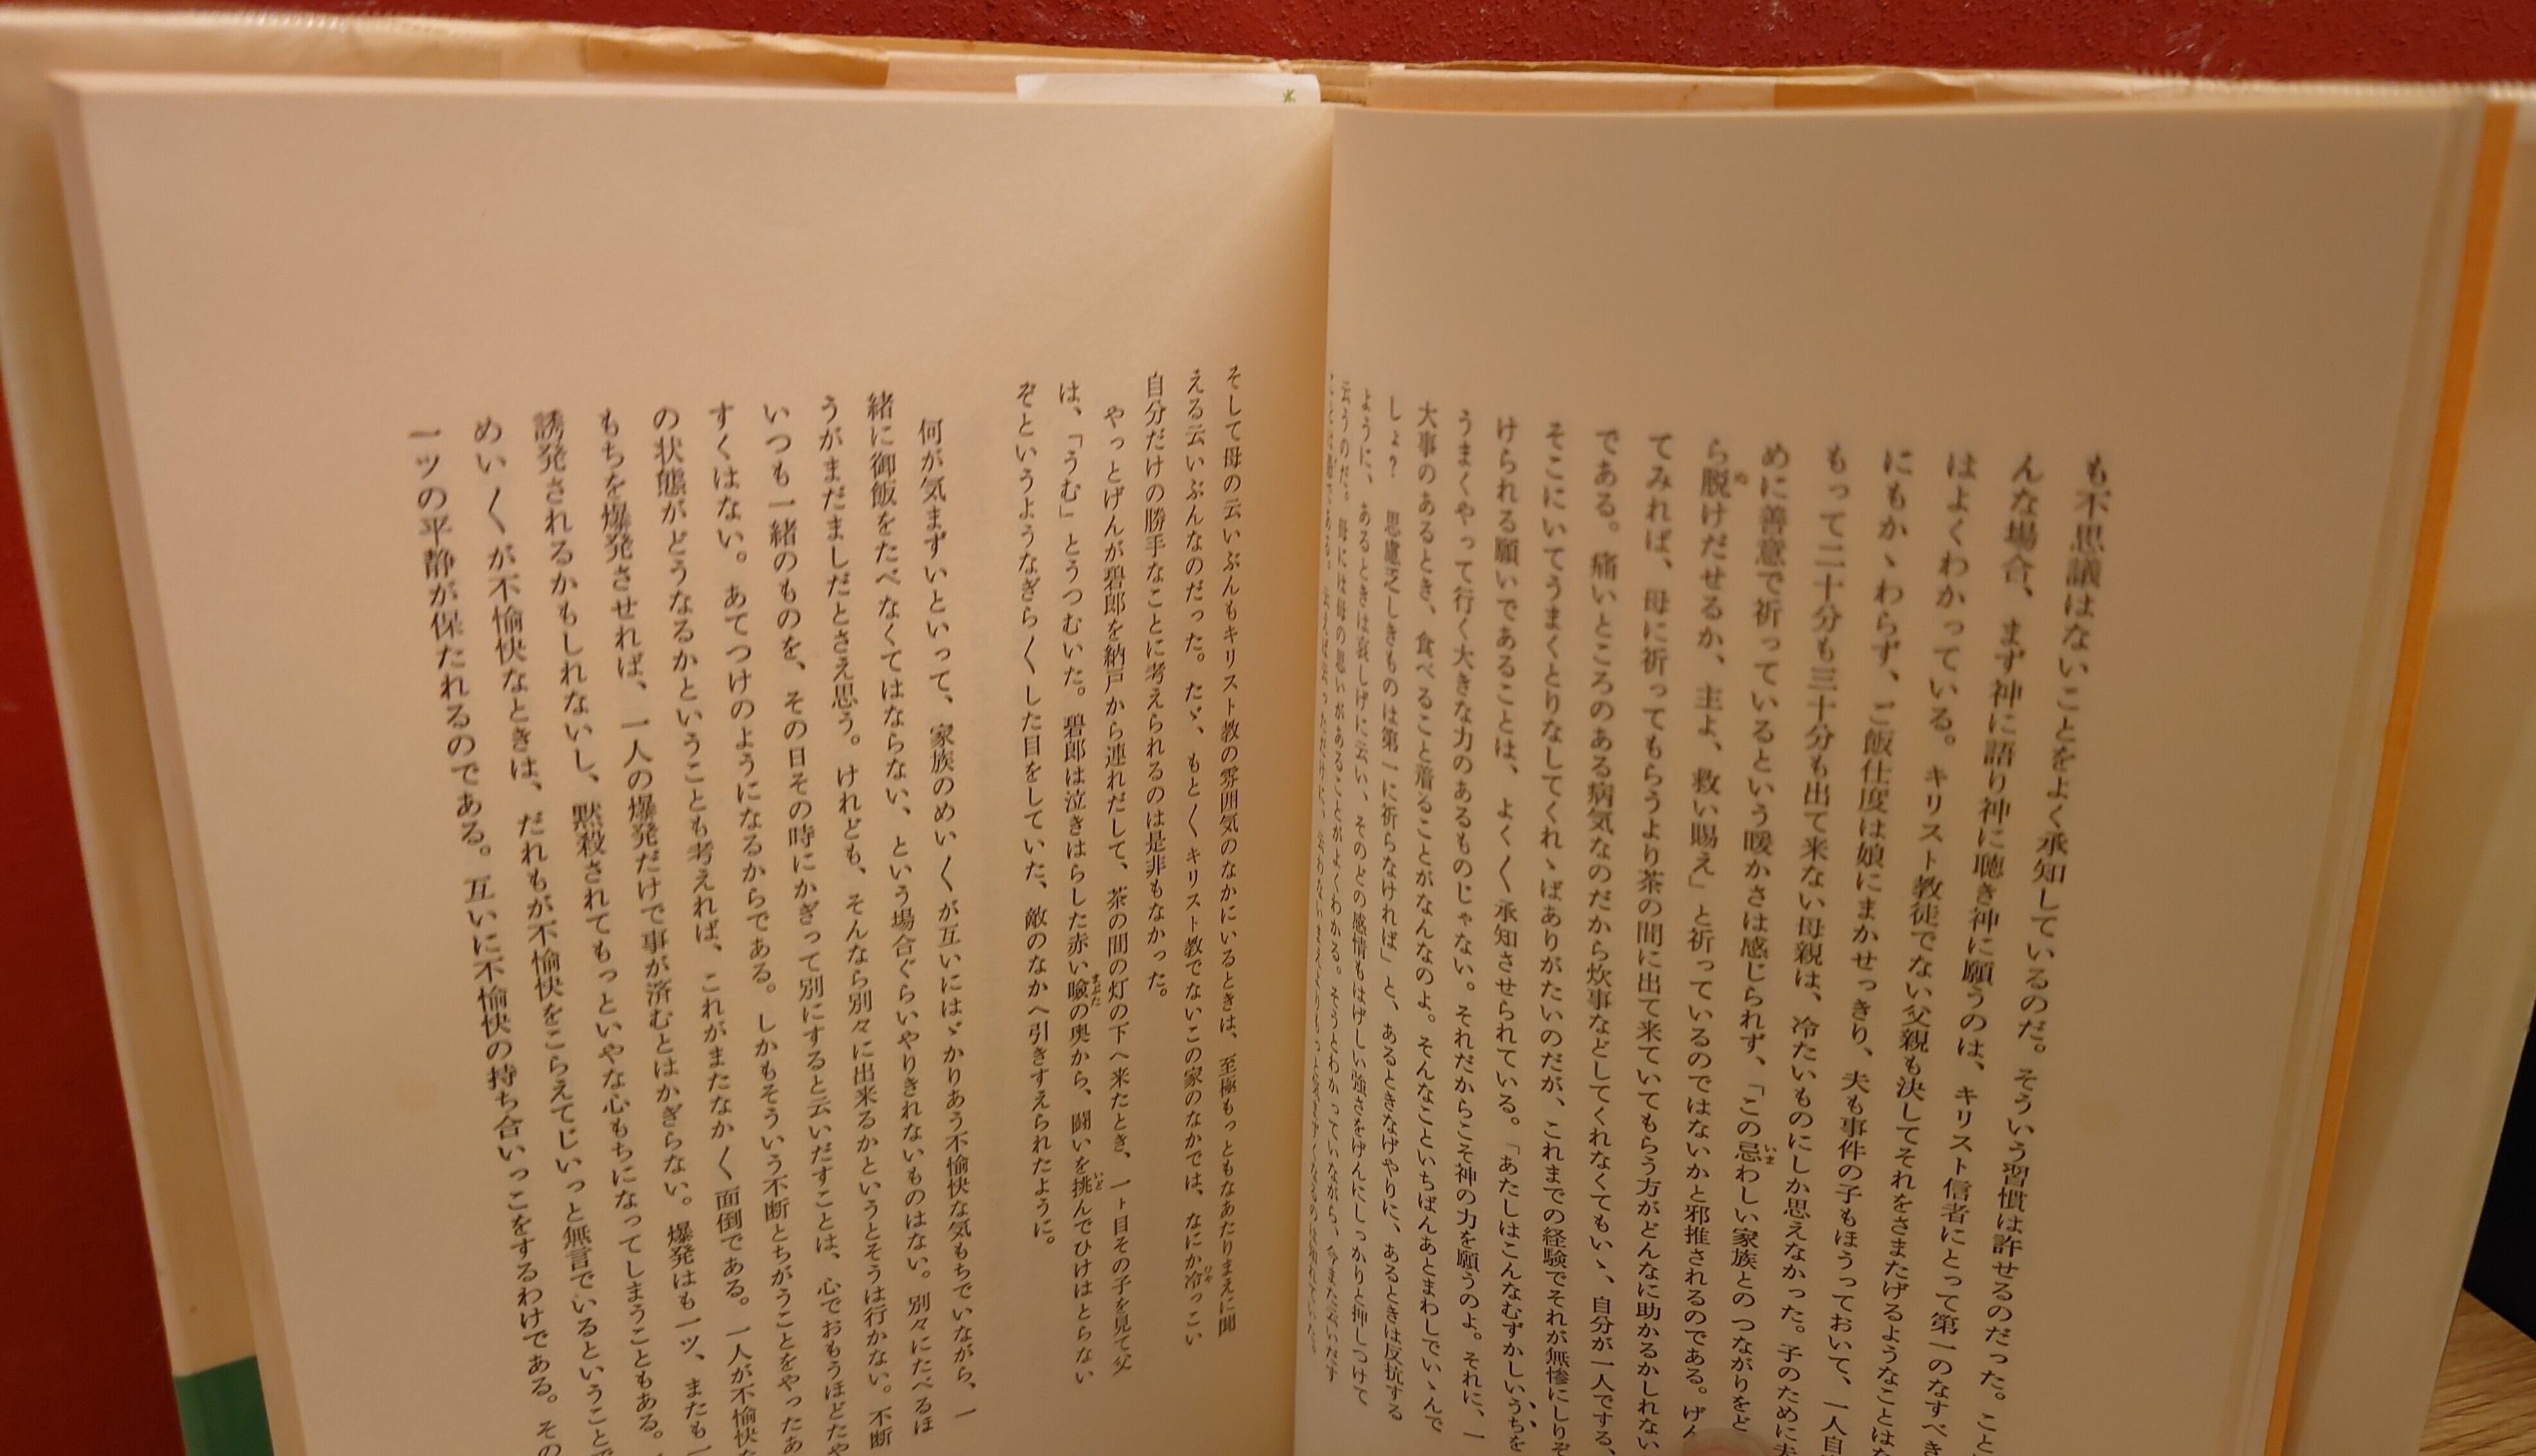 も不思議はないことをよく承知しているのだ。そういう習慣は許せるのだった。こと
んな場合、まず神に語り神に聴き神に願うのは、キリスト信者にとって第一のなすべき
はよくわかっている。キリスト教徒でない父親も決してそれをさまたげるようなことはな
にもかゝわらず、ご飯仕度は娘にまかせっきり、夫も事件の子もほうっておいて、一人自
もって二十分も三十分も出て来ない母親は、冷たいものにしか思えなかった。子のために夫
めに善意で祈っているという暖かさは感じられず、「この忌わしい家族とのつながりをど
ら脱けだせるか、主よ、救い賜え」と祈っているのではないかと邪推されるのである。げん
てみれば、母に祈ってもらうより茶の間に出て来ていてもらう方がどんなに助かるかしれない
である。痛いところのある病気なのだから炊事などしてくれなくてもいゝ、自分が一人でする、
そこにいてうまくとりなしてくれゝばありがたいのだが、これまでの経験でそれが無惨にしりぞ
けられる願いであることは、よく〱承知させられている。「あたしはこんなむずかしいうちを
うまくやって行く大きな力のあるものじゃない。それだからこそ神の力を願うのよ。それに、一
大事のあるとき、食べること着ることがなんなのよ。そんなこといちばんあとまわしでいゝんで
しょ？　思慮乏しきものは第一に祈らなければ」と、あるときなげやりに、あるときは反抗する
ように、あるときは哀しげに云い、そのどの感情もはげしい強さをげんにしっかりと押しつけて
云うのだ。母には母の思いがあることがよくわかる。そうとわかっていながら、今また云いだす
そして母の云いぶんもキリスト教の雰囲気のなかにいるときは、至極もっともなあたりまえに聞
える云いぶんなのだった。たゞ、もと〱キリスト教でないこの家のなかでは、なにか冷っこい
自分だけの勝手なことに考えられるのは是非もなかった。
やっとげんが碧郎を納戸から連れだして、茶の間の灯の下へ来たとき、一ト目その子を見て父
は、「うむ」とうつむいた。碧郎は泣きはらした赤い瞼の奥から、闘いを挑んでひけはとらない
ぞというようなぎら〱した目をしていた、敵のなかへ引きすえられたように。
何が気まずいといって、家族のめい〱が互いにはゞかりあう不愉快な気もちでいながら、一
緒に御飯をたべなくてはならない、という場合ぐらいやりきれないものはない。別々にたべるほ
うがまだましだとさえ思う。けれども、そんなら別々に出来るかというとそうは行かない。不断
いつも一緒のものを、その日その時にかぎって別にすると云いだすことは、心でおもうほどたや
すくはない。あてつけのようになるからである。しかもそういう不断とちがうことをやったあ
の状態がどうなるかということも考えれば、これがまたなか〱面倒である。一人が不愉快な
もちを爆発させれば、一人の爆発だけで事が済むとはかぎらない。爆発はも一ツ、またも一
誘発されるかもしれないし、黙殺されてもっといやな心もちになってしまうこともある。
めい〱が不愉快なときは、だれもが不愉快をこらえてじいっと無言でいるということ
一ツの平静が保たれるのである。互いに不愉快の持ち合いっこをするわけである。その